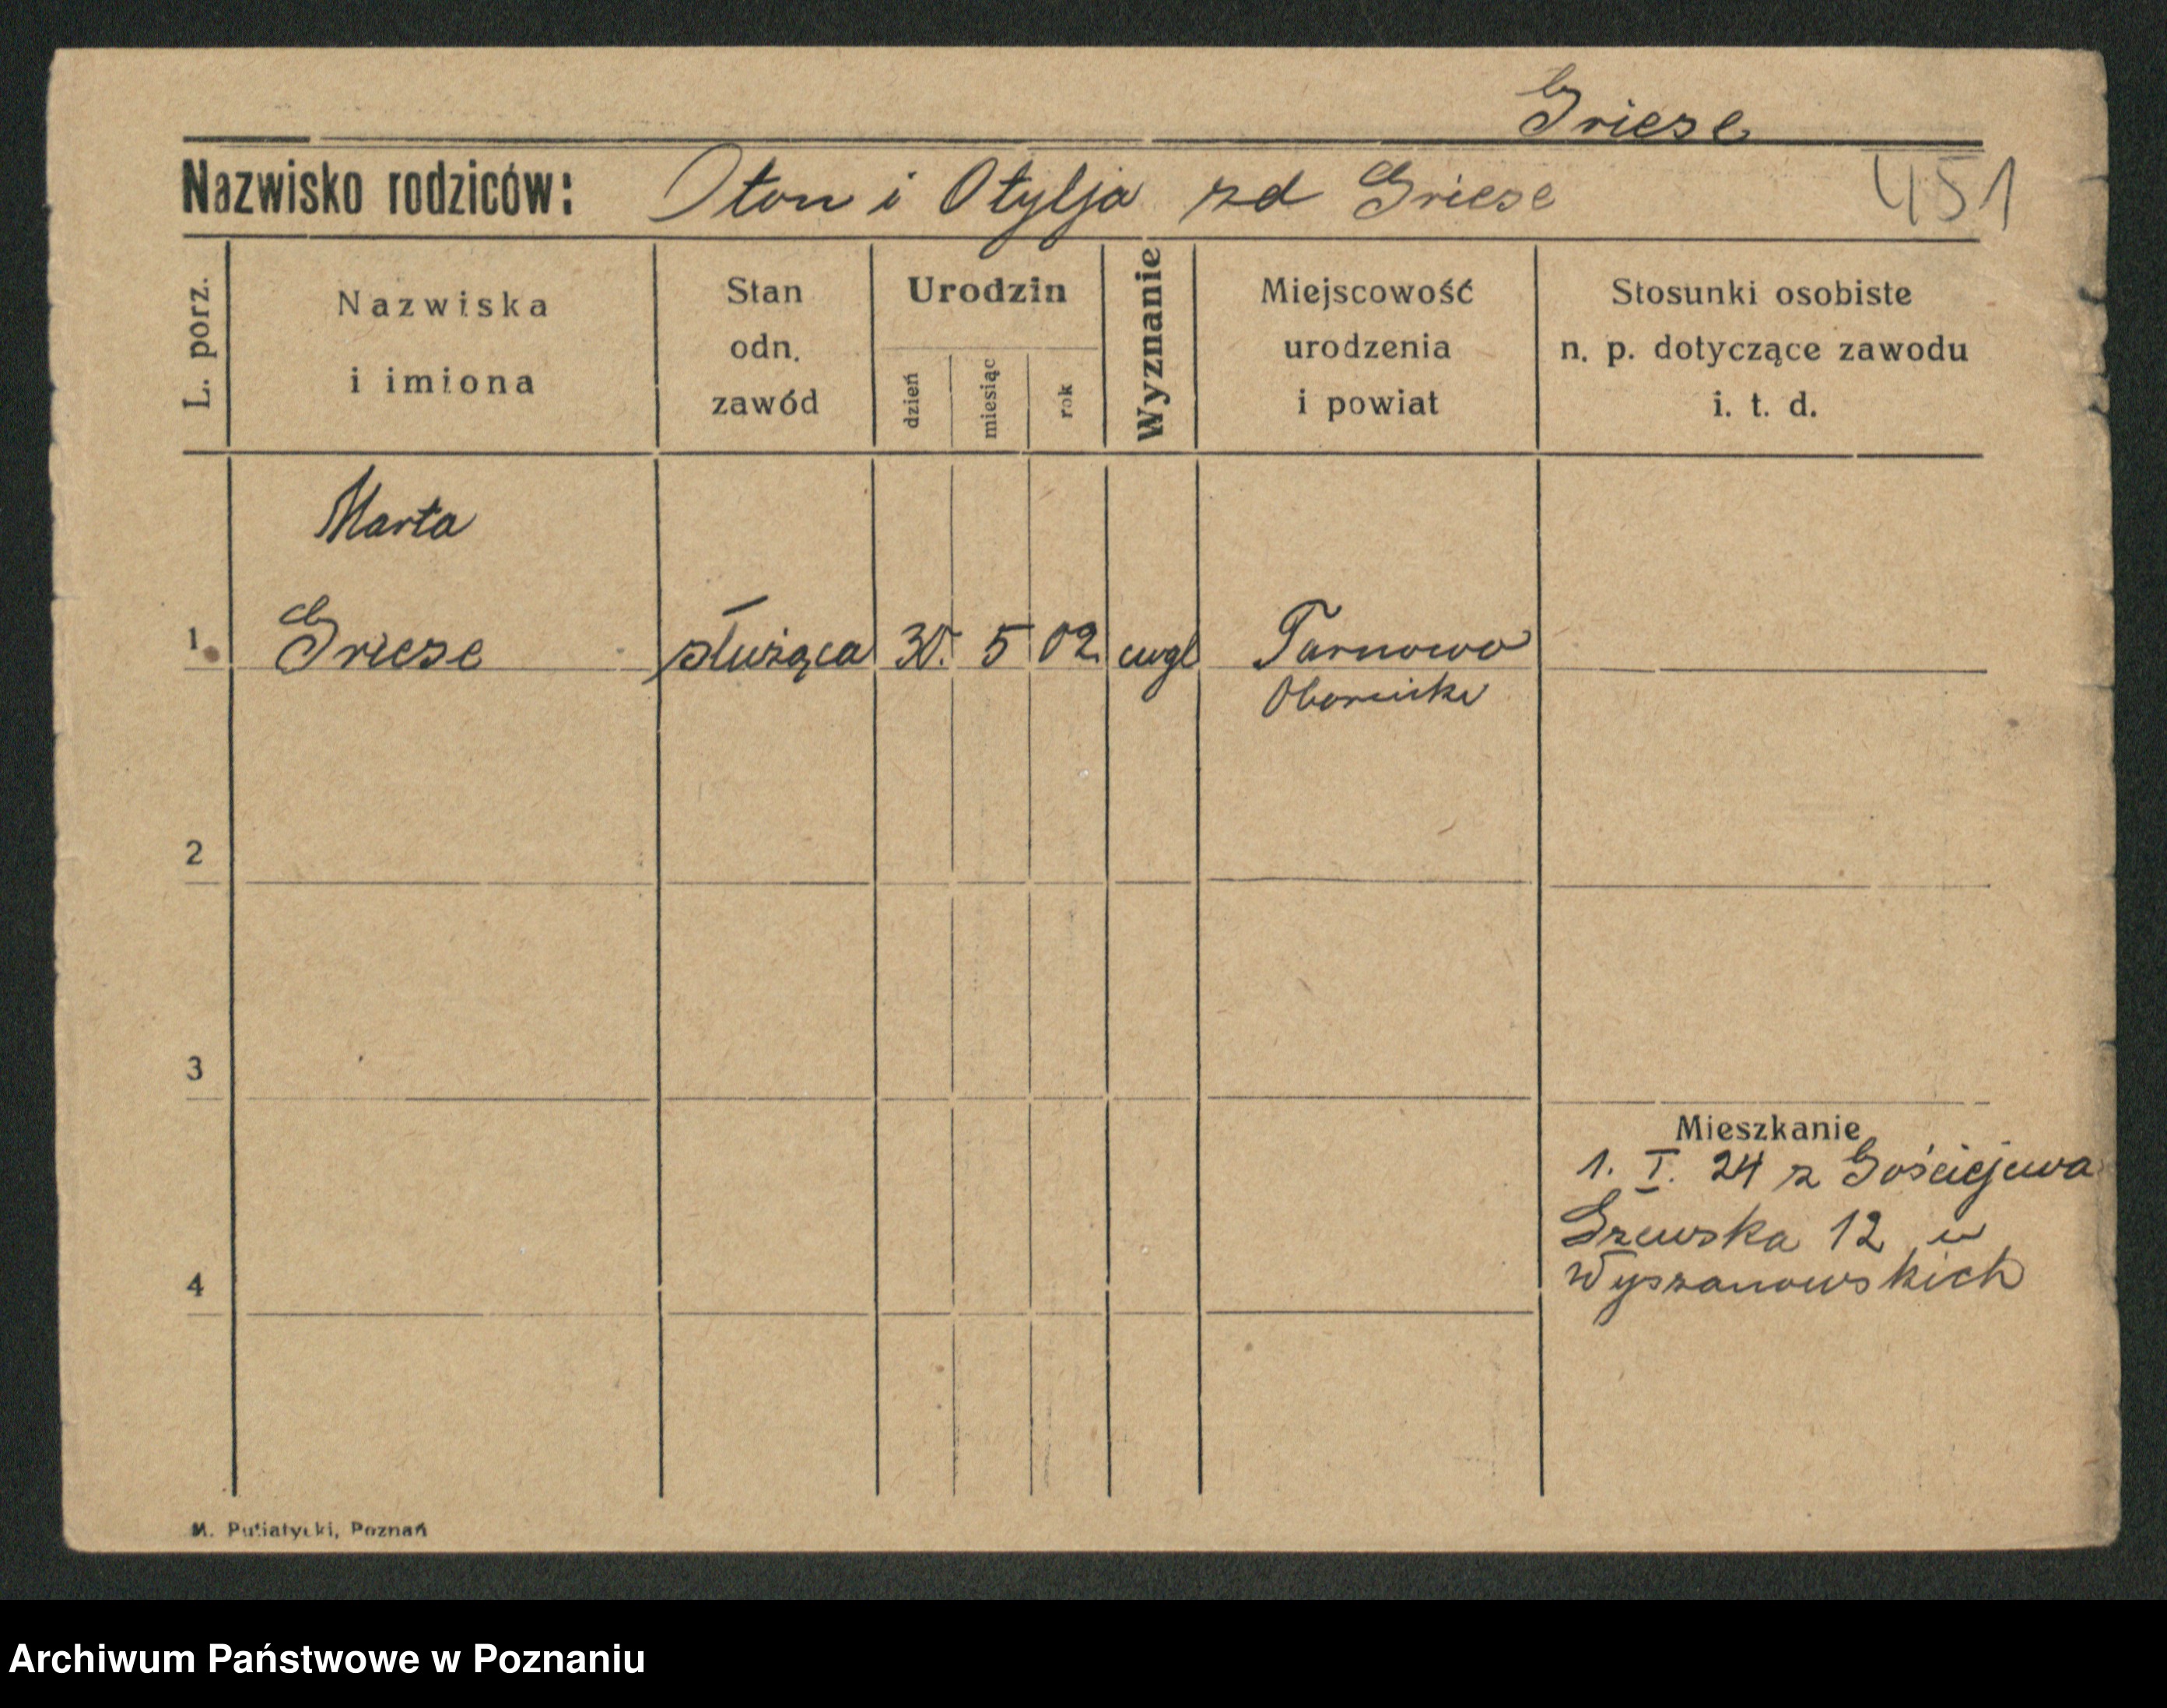 Griese
Nazwisko rodziców: Oton i Otylja zd Griese 451
L. porz.
Nazwiska
i imiona
Stan
odn.
zawód
Urodzin
dzień
miesiąc
rok
Wyznanie
Miejscowość
urodzenia
i powiat
Stosunki osobiste
n. p. dotyczące zawodu
i. t. d.
Marta
1. Griese służąca 30. 5 02. ewgl Tarnowo
Oborniki
2
3
Mieszkanie
1. I. 24 z Gościejewa
12 u
4 Wyszanowskich
M. Putiatycki, Poznań
Archiwum Państwowe w Poznaniu